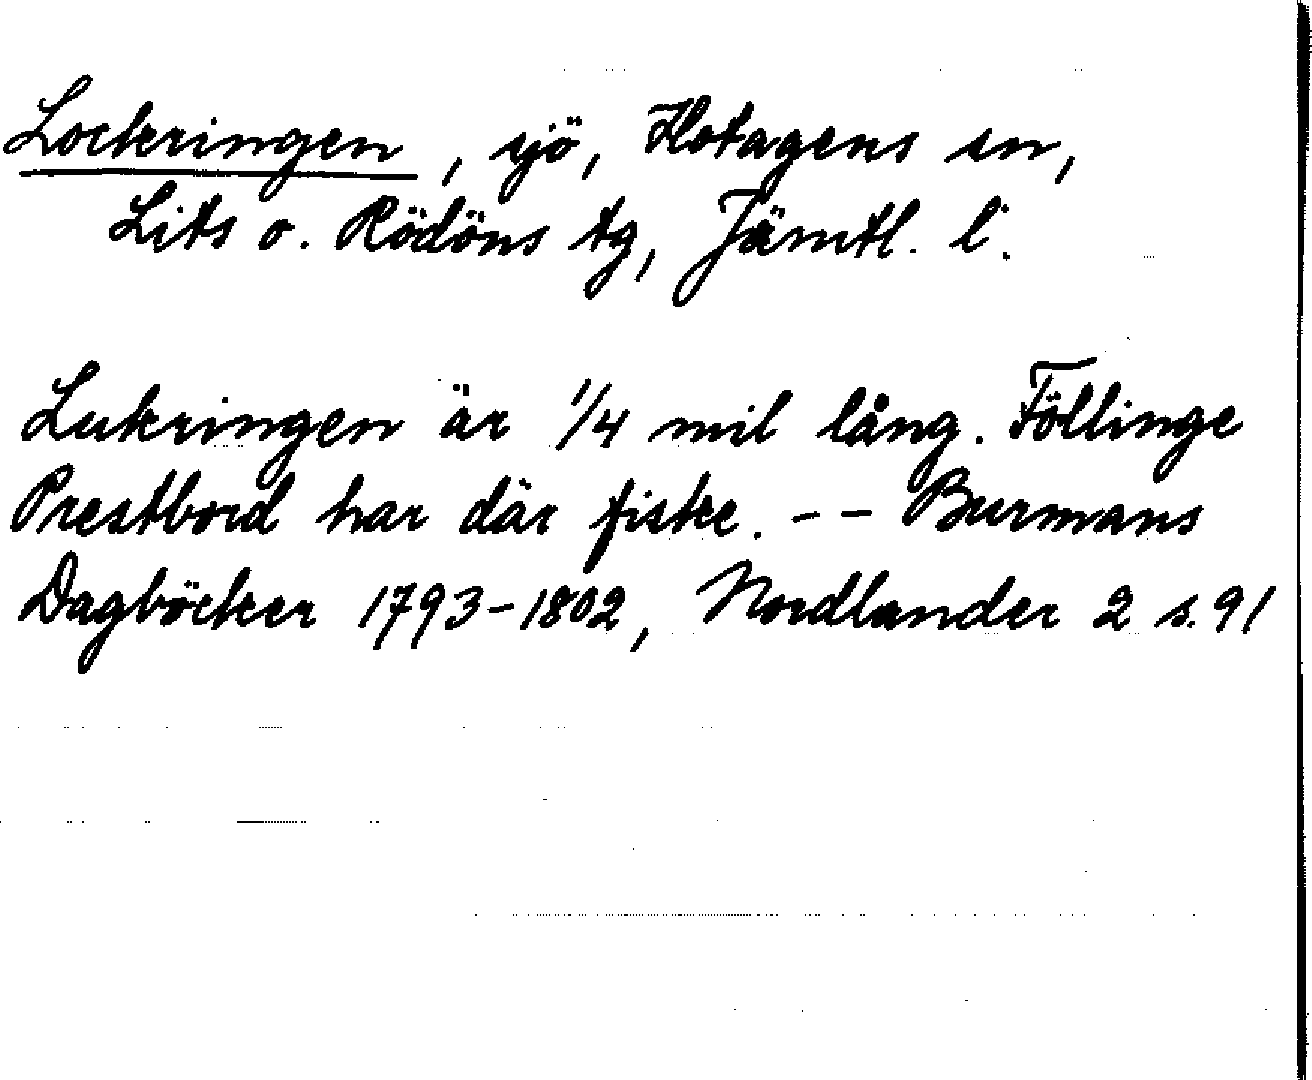 Lockringen, sjö, Hotagens sn,
Lits o. Rödöns tg, Jämtl. l.
Lukringen är 1/4 mil lång. Föllinge
Prestbord har där fiske. -- Burmans
Dagböcker 1793-1802, Nordlander 2 s. 91